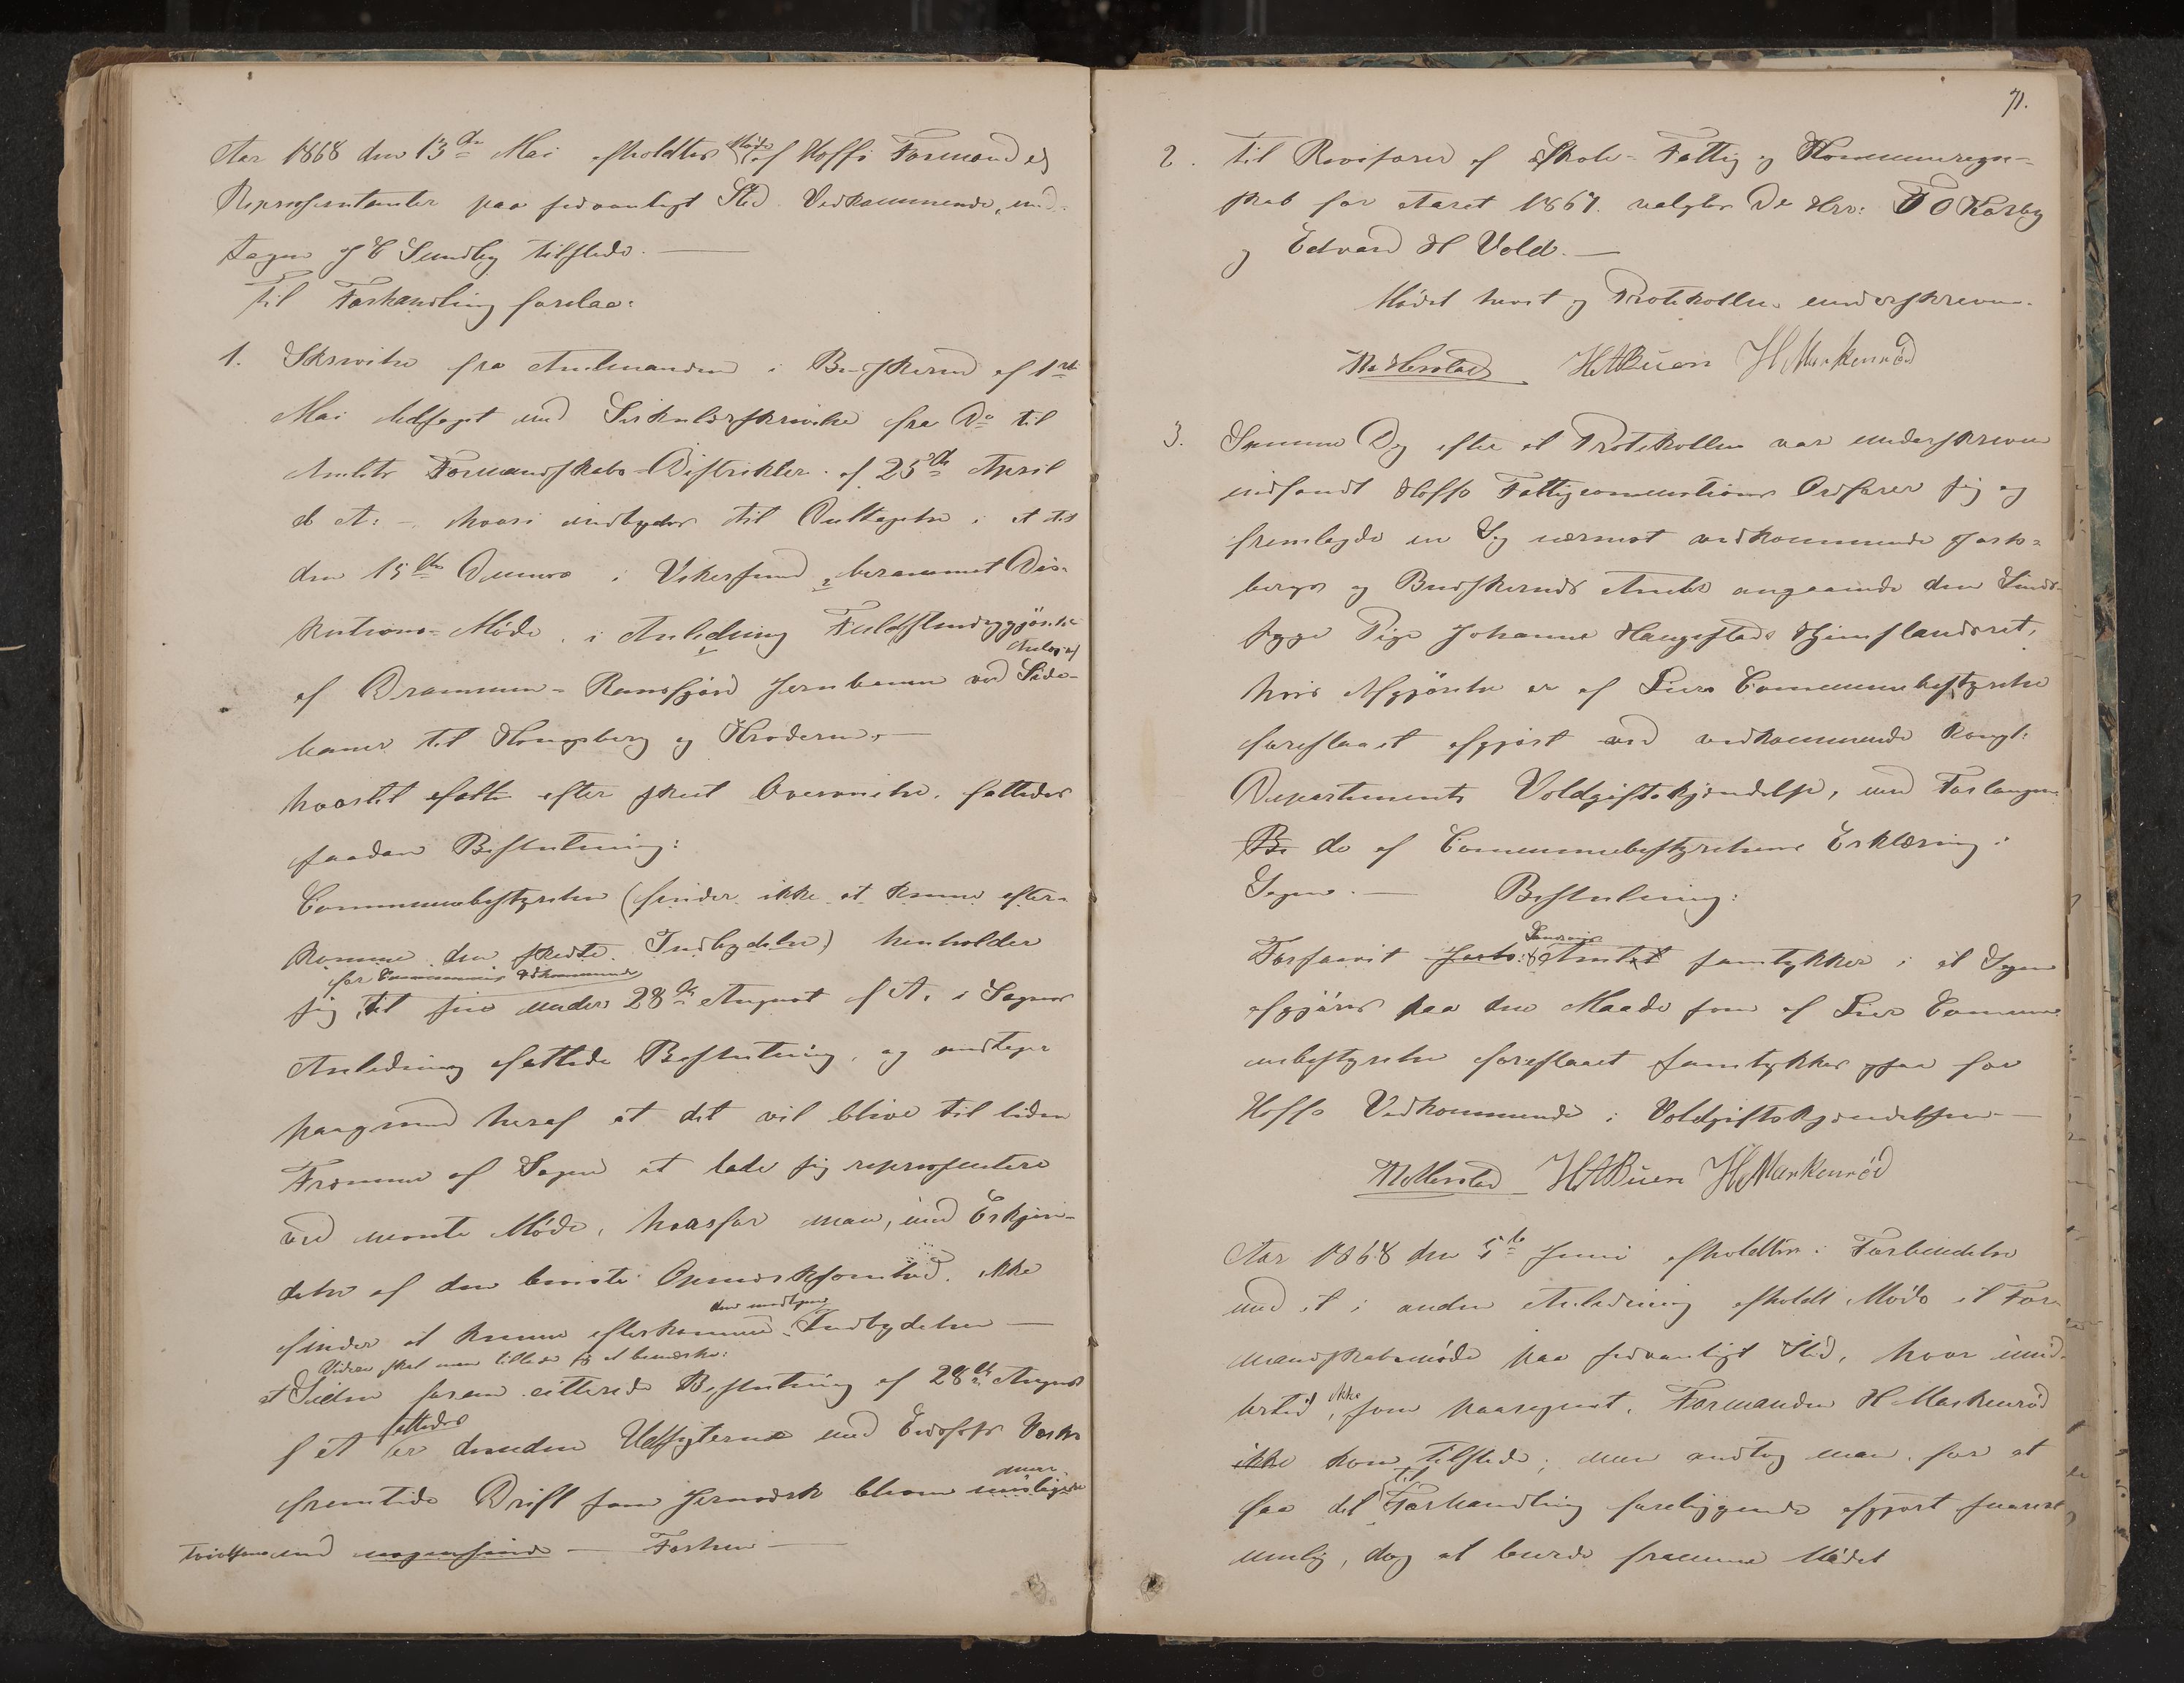 Aar 1868 den 13de Mai afholdtes Møde af Hoffs Formænd og
Repræsentanter paa sedvanligt Sted. Vedkommende, und-
tagen E Sundby tilstede. —
Til Forhandling forelaa:
1. Skrivelse fra Amtmanden i Buskerud af 1ste
Mai ledsaget med Sirkulærskrivelse fra Do til
Amtets Formandskabs-Distrikter af 25de April
d. A: - hvori indbydes til Deltagelse i et til
den 15de Dennes i Vikersund berammet Dis-
kutions-Møde i Anledning Fuldstændiggjørelse
Anlæg af
af Drammen-Randsfjord Jernbanen ved Side-
baner til Kongsberg og Krøderen. —
hvortil efter skeet Overveielse fattedes
saadan Beslutning:
Communebestyrelsen (finder ikke at kunne efter-
komme den skedte Indbydelse) henholder
for Communens Vedkommende
sig til sin under 28de August f A. i Sagens
Anledning fattede Beslutning, og antager
paagrund heraf at det vil blive til liden
Fremme af Sagen at lade sig repræsentere
ved nævnte Møde, hvorfor man, med Erkjen-
delse af den beviste Opmærksomhed, ikke
finder at kunne efterkomme den modtagne Indbydelse —
Videre skal man tillade sig at bemærke:
at Siden foran citterede Beslutning af 28de August
f A fattedes er desuden Udsigterne med Eidsfos Værks
fremtide Drift som Jernværk bleven mere
tvivlsom end nogensinde — Forhen —
71.
2. Til Revisorer af Skole- Fattig og Kommuneregn-
skab for Aaret 1867. valgtes De Hrr: T O Kørby
og Edvard H Vold. —
Mødet hævet og Protokollen underskreven.
HABuen H Markenrød
3. Samme Dag efter at Protokollen var underskreven
indfandt Hoffs Fattigcommitions Ordfører sig og
fremlagde en Sag nærmest vedkommende Jarls-
bergs og Buskeruds Amter angaaende den Sinds-
syge Pige Johanne Haugestads Hjemstandsret,
hvis Afgjørelse er af Liers Communebestyrelse
foreslaaet afgjort ved vedkommende Kongl:
Departements Voldgiftskjendelse, med Forlangen-
Be de af Communebestyrelsens Erklæring i
Sagen. — Beslutning:
Forsaavit Jarls: Amtet samtykker i at Sagen
afgjøres paa den Maade som af Lier Commu-
nebestyrelse foreslaaet samtykkes ogsaa for
Hoffs Vedkommende i Voldgiftskjendelsen —
HABuen H Markenrød
Aar 1868 den 5te Juni afholdtes i Forbindelse
med et i anden Anledning afholdt Møde et For-
mandskabsmøde paa sedvanligt Sted, hvor imid-
lertid, ikke som paaregnet, Formanden H Markenrød
ikke kom tilstede; men antog man for at
faa det til Forhandling foreliggende afgjort snarest
mulig, dog at burde fremme Mødet